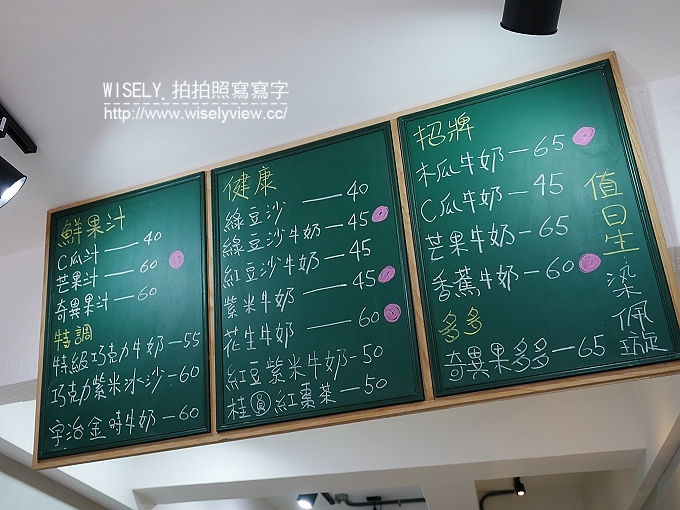 WISELY 拍拍照寫寫字
http://www.wiselyview.cc/
鮮果汁
C瓜汁—40
芒果汁—60
奇異果汁—60
特調
特級巧克力牛奶—55
巧克力紫米冰沙—60
宇治金時牛奶—60
健康
綠豆沙—40
綠豆沙牛奶—45
紅豆沙牛奶—45
紫米牛奶—45
花生牛奶—60
紅豆紫米牛奶-50
桂圓紅棗茶—50
招牌
木瓜牛奶—65
C瓜牛奶—45
芒果牛奶—65
香蕉牛奶—60
多多
奇異果多多—65
值日生
佩璇